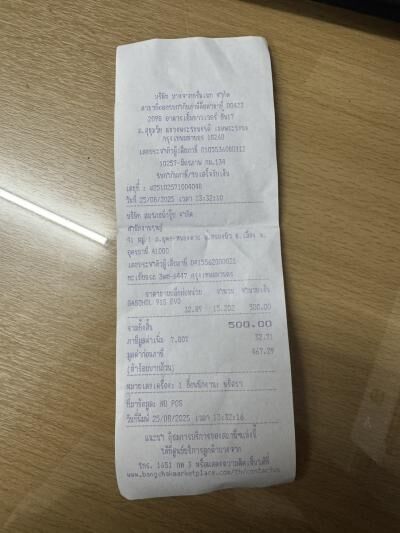 บริษัท บางจากกรีนเนท จำกัด
สาขาที่ออกใบกำกับภาษีคือสาขาที่ 00422
2098 อาคารเอ็มทาวเวอร์ ชั้น7
ถ.สุขุมวิท แขวงพระโขนงใต้ เขตพระโขนง
กรุงเทพมหานคร 10260
เลขประจำตัวผู้เสียภาษี 0105536080312
10257-มิตรภาพ กม.134
ใบกำกับภาษี/ใบเสร็จรับเงิน
เลขที่ : 425102571004048
วันที่ 25/08/2025 เวลา 13:32:10
บริษัท จำกัด
สำนักงานใหญ่
อุดรธานี 41000
เลขประจำตัวผู้เสียภาษี 0415562000021
ทะเบียนรถ 3ฒธ-6447 กรุงเทพมหานคร
จำนวน จำนวนเงิน
GASOHOL 91S EVO
32.89 15.202 500.00
รวมทั้งสิ้น 500.00
ภาษีมูลค่าเพิ่ม 7.00% 32.71
มูลค่าก่อนภาษี 467.29
(ห้าร้อยบาทถ้วน)
หมายเลขเครื่อง: 1 ชื่อพนักงาน:
ที่มาข้อมูล: NO POS
วันที่พิมพ์ 25/08/2025 เวลา 13:32:16
แนะนำ ติชมการบริการของสถานีฯแห่งนี้
ได้ที่ศูนย์บริการลูกค้าบางจาก
โทร. 1651 กด 3 หรือแสดงความคิดเห็นได้ที่
www.bangchakmarketplace.com/th/contactus